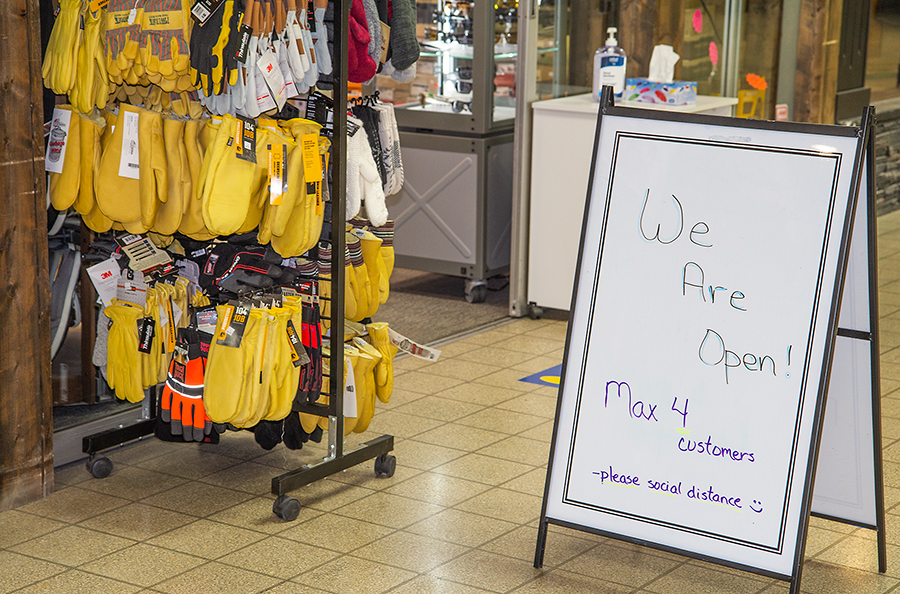 We
Are
Open!
Max 4
customers
-please social distance :)
3M
104
104